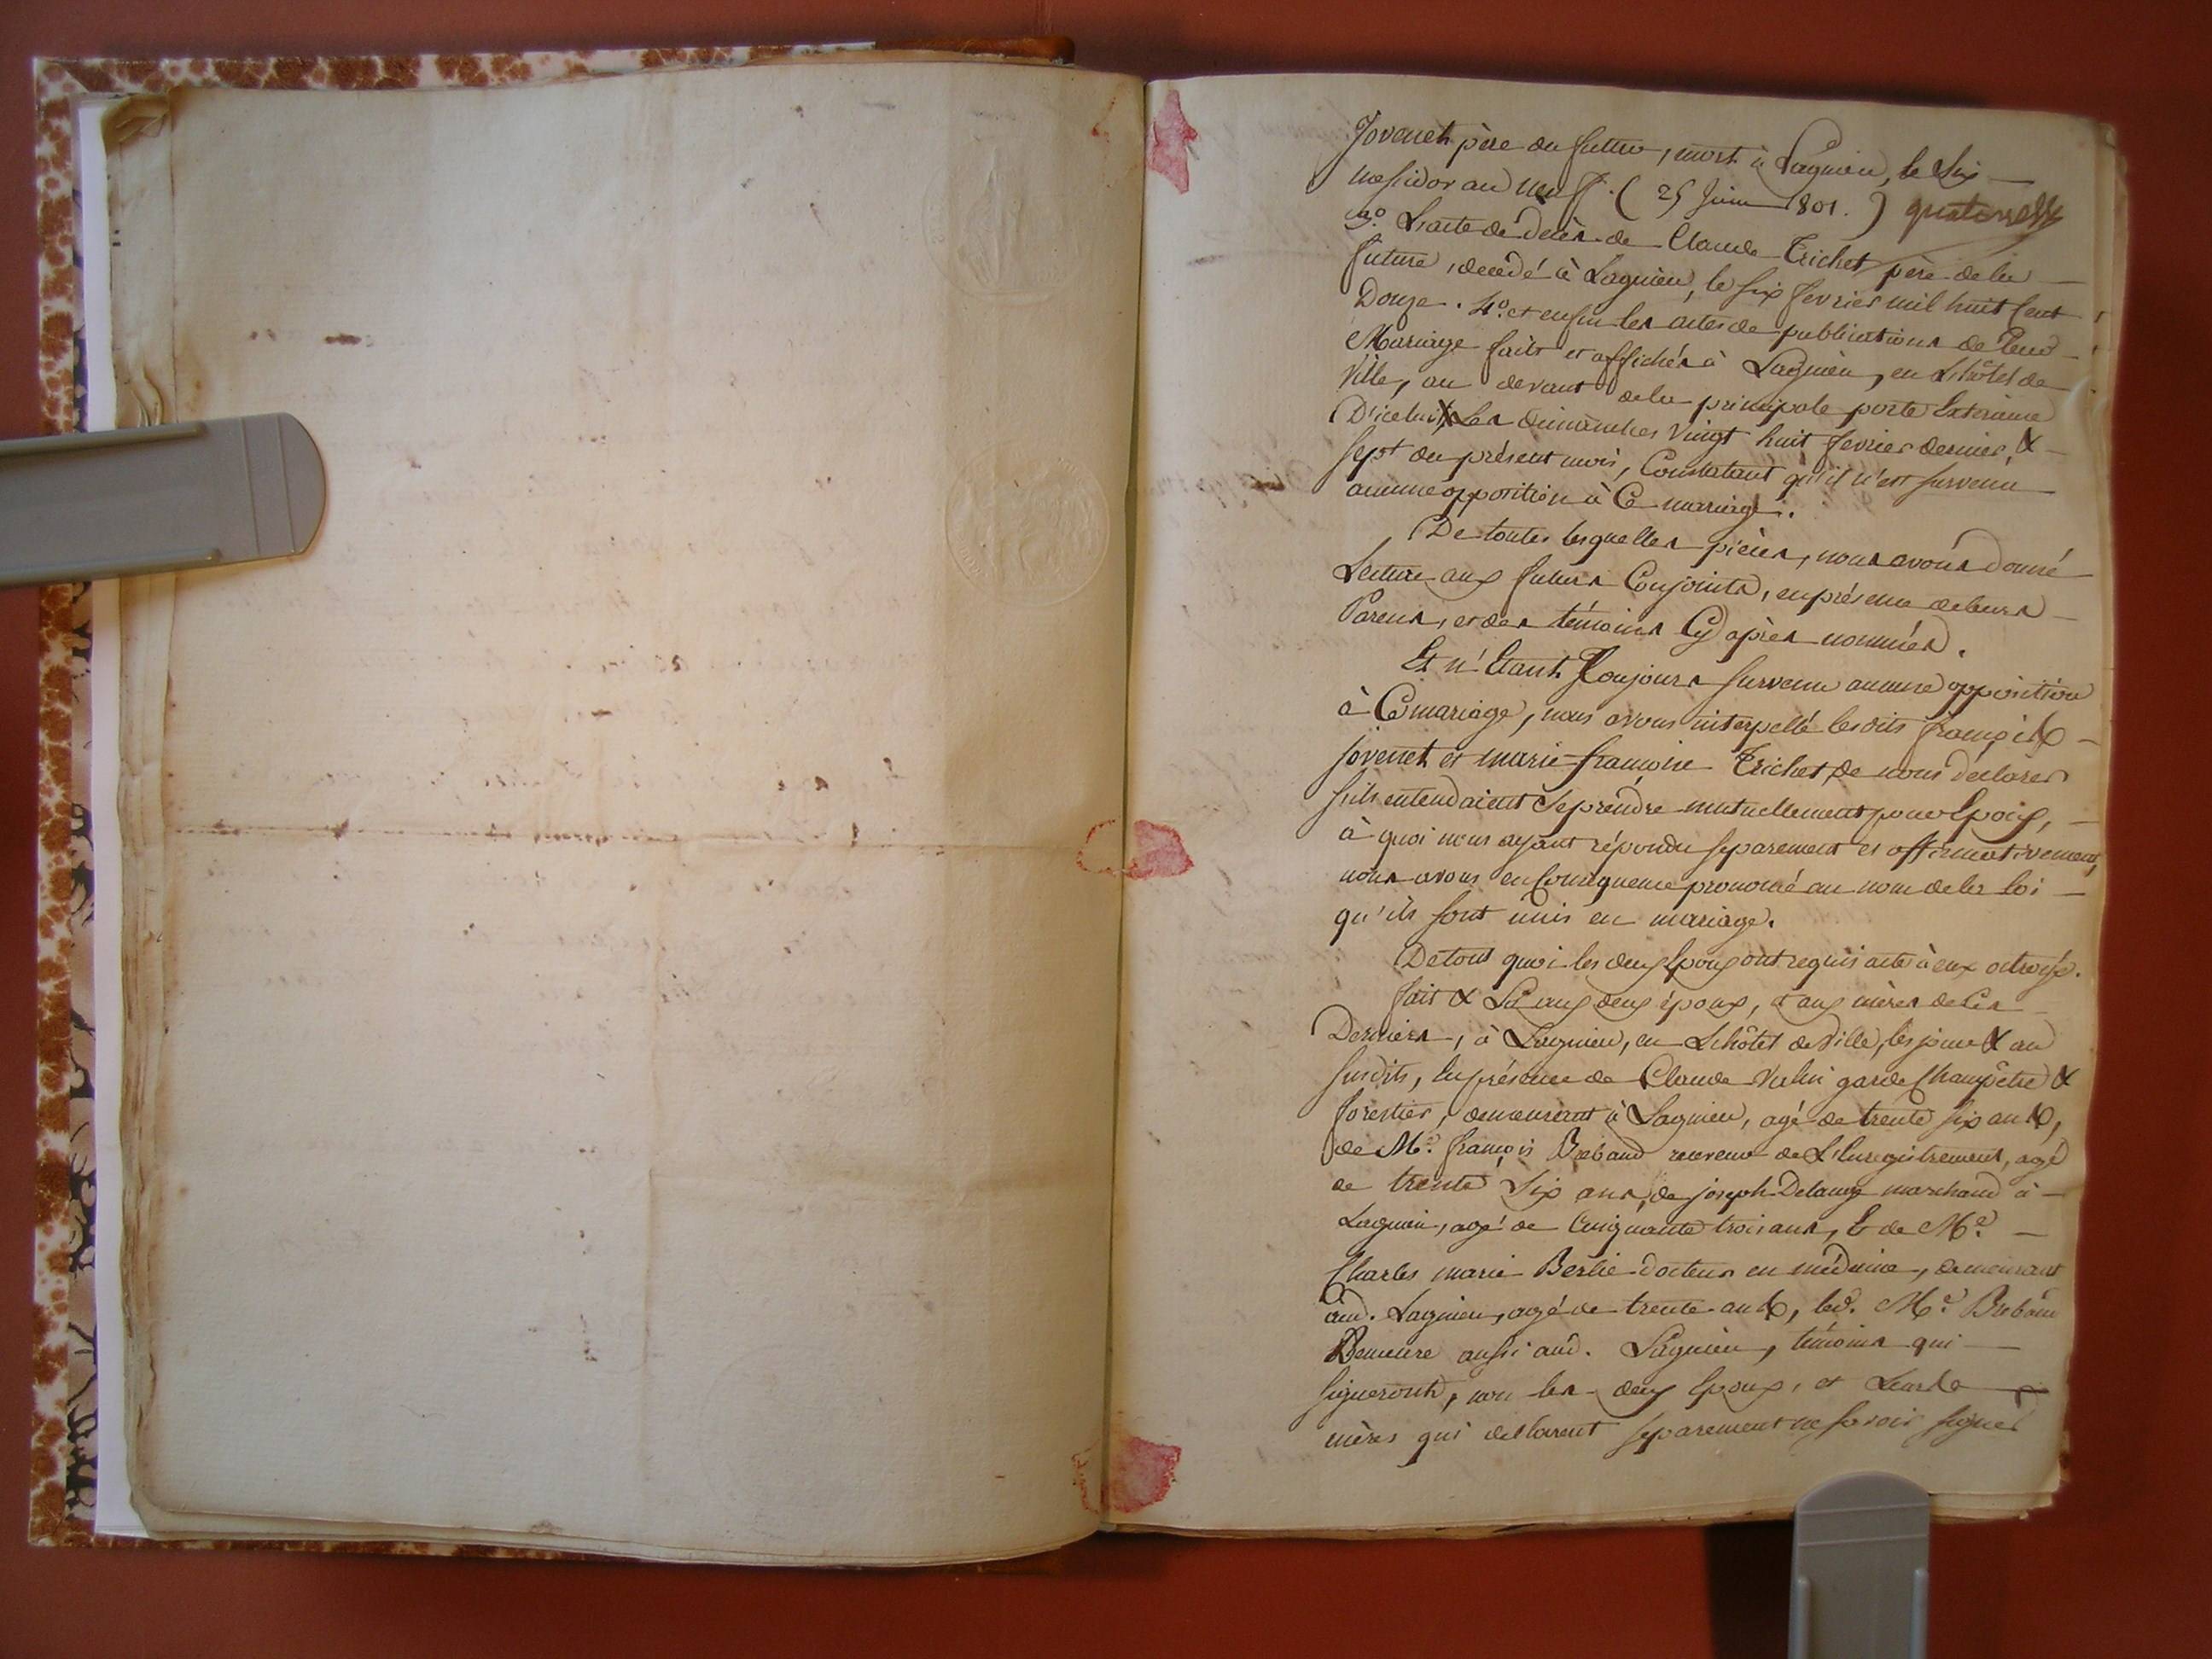 Jovenet père du futur, mort à Lagnieu, le Six
messidor an neuf. (25 Juin 1801.) quatorze
3.° L'acte de décès de Claude Trichet père de la
future, décédé à Lagnieu, le six fevrier mil huit Cent
Douze. 4.° et enfin les actes de publications de leur
Mariage faits et affichés à Lagnieu, en L'hôtel de
Ville, au devant de la principale porte Extérieure
D'icelui, Les dimanches Vingt huit fevrier dernier, &
sept du présent mois, Constatant qu'il n'est survenu
aucune opposition à Ce mariage.
De toutes lesquelles pièces, nous avons donné
Lecture aux futurs Conjoints, en présence de leurs
Parens, et des témoins Cy après nommés.
Et n'Etant Toujours survenu aucune opposition
à Ce mariage, nous avons interpellé lesdits françois
Jovenet et marie françoise Trichet de nous déclarer
s'ils entendaient se prendre mutuellement pour Epoux,
à quoi nous ayant répondu séparement et affirmativement,
nous avons en Conséquence prononcé au nom de la loi
qu'ils sont unis en mariage.
De tout quoi les deux Epoux ont requis acte à eux octroyé.
fait & Lu aux deux époux, et aux mères de Ces
Derniers, à Lagnieu, en L'hôtel de Ville, les jour & an
susdits, En présence de Claude garde Champêtre &
forestier, demeurant à Lagnieu, agé de trente six ans,
de M.r françois Brebaud receveur de L'Enregistrement, agé
de trente Six ans, de joseph marchand à
Lagnieu, agé de Cinquante trois ans, Et de M.r
Charles marie Berlie docteur en médecine, demeurant
aud. Lagnieu, agé de trente ans, led. M.r Brebaud
Demeure aussi aud. Lagnieu, témoins qui
signeront, non les deux Epoux, et Leurs
mères qui déclarent séparement ne savoir signer